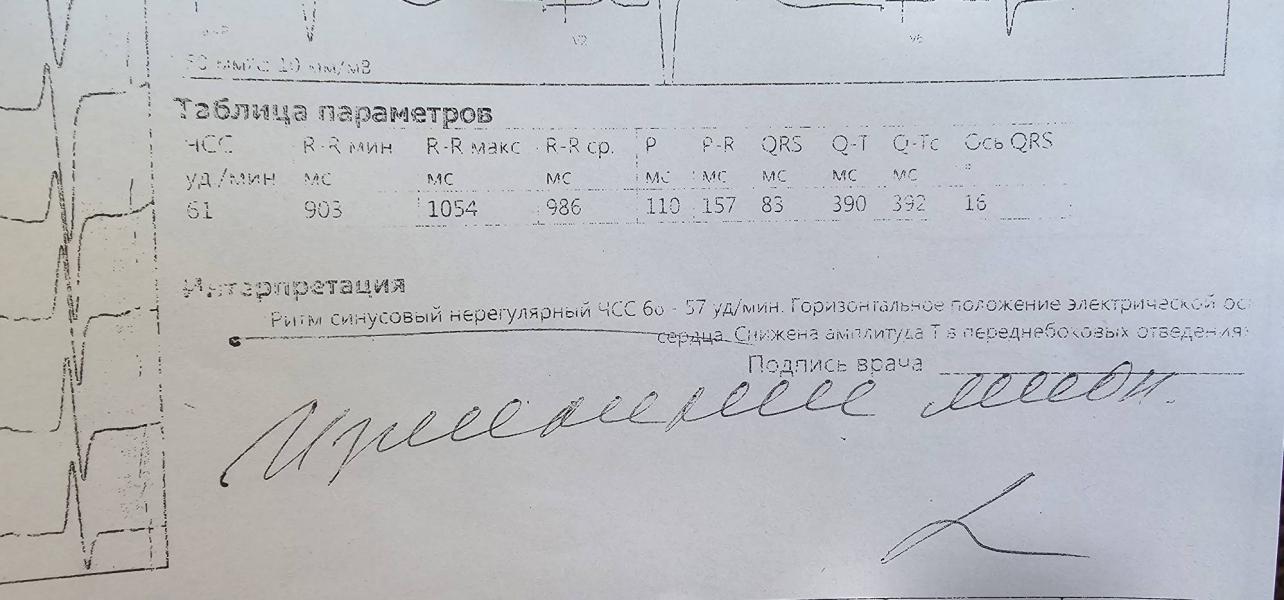 V2
V6
50 мм/с 10 мм/мВ
Таблица параметров
ЧСС R-R мин R-R макс R-R ср. P P-R QRS Q-T Q-Tc Ось QRS
уд/мин мс мс мс мс мс мс мс мс °
61 903 1054 986 110 157 83 390 392 16
Интерпретация
Ритм синусовый нерегулярный ЧСС 66 - 57 уд/мин. Горизонтальное положение электрической ос
сердца. Снижена амплитуда Т в переднебоковых отведения
Подпись врача